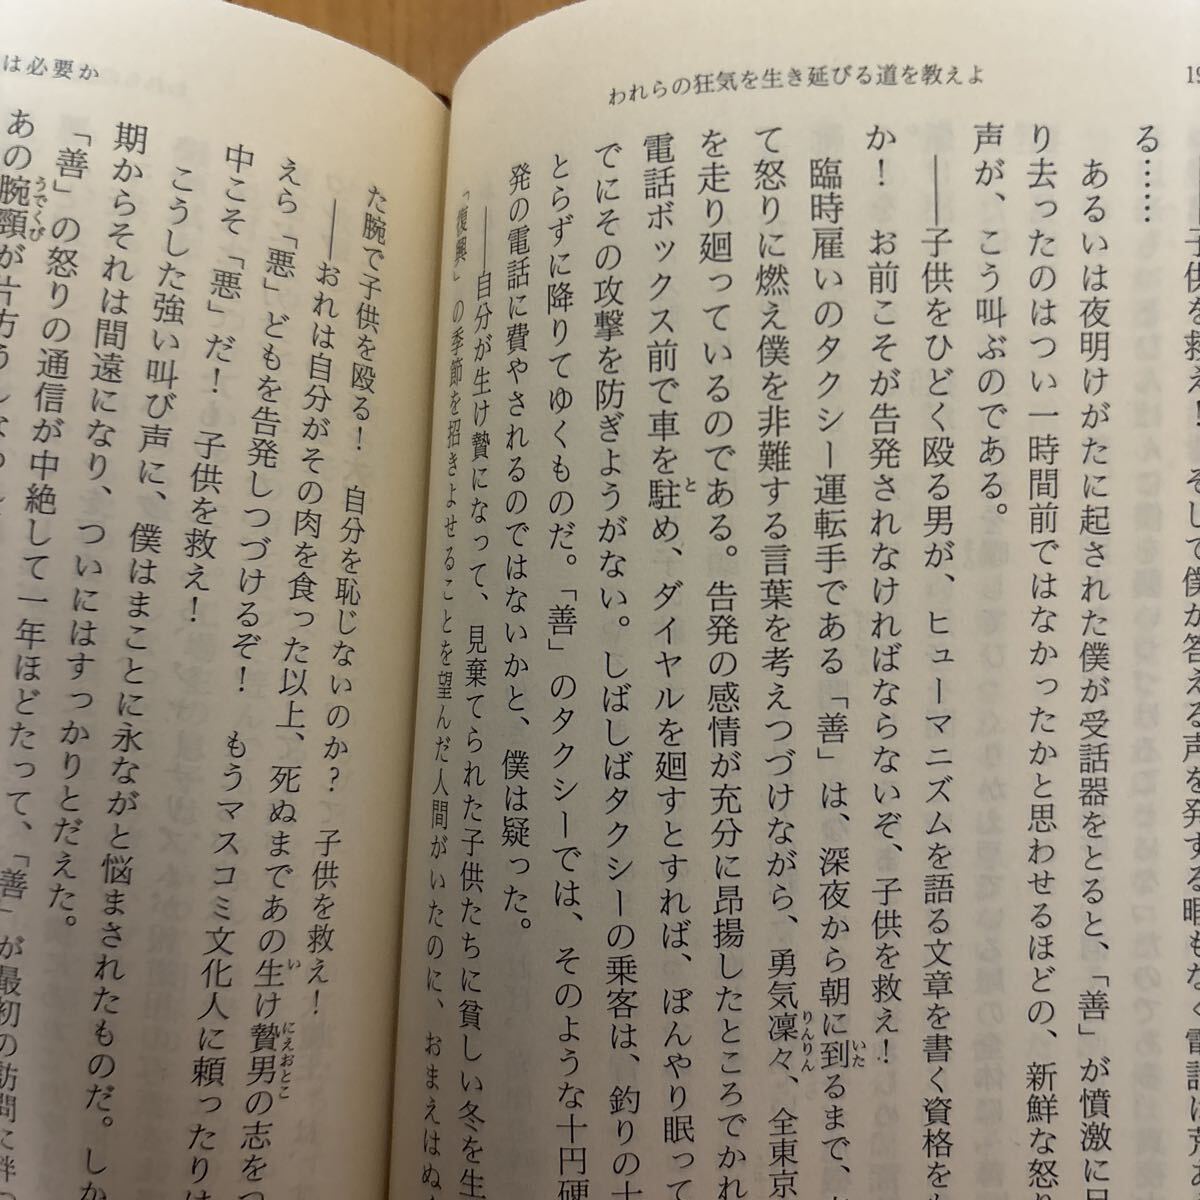 われらの狂気を生き延びる道を教えよ
19
子供を救え！ そして僕が答える声を発する暇もなく電話は荒
る……
あるいは夜明けがたに起された僕が受話器をとると、「善」が憤激に
り去ったのはつい一時間前ではなかったかと思わせるほどの、新鮮な怒り
声が、こう叫ぶのである。
――子供をひどく殴る男が、ヒューマニズムを語る文章を書く資格を
か！ お前こそが告発されなければならないぞ、子供を救え！
臨時雇いのタクシー運転手である「善」は、深夜から朝に到るまで、
て怒りに燃え僕を非難する言葉を考えつづけながら、勇気凜々、全東京
を走り廻っているのである。告発の感情が充分に昂揚したところでかれ
電話ボックス前で車を駐め、ダイヤルを廻すとすれば、ぼんやり眠って
でにその攻撃を防ぎようがない。しばしばタクシーの乗客は、釣りの十
とらずに降りてゆくものだ。「善」のタクシーでは、そのような十円硬
発の電話に費やされるのではないかと、僕は疑った。
――自分が生け贄になって、見棄てられた子供たちに貧しい冬を生
「復興」の季節を招きよせることを望んだ人間がいたのに、おまえはぬ
は必要か
た腕で子供を殴る！ 自分を恥じないのか？ 子供を救え！
――おれは自分がその肉を食った以上、死ぬまであの生け贄男の志をつ
えら「悪」どもを告発しつづけるぞ！ もうマスコミ文化人に頼ったりは
中こそ「悪」だ！ 子供を救え！
こうした強い叫び声に、僕はまことに永ながと悩まされたものだ。しか
期からそれは間遠になり、ついにはすっかりとだえた。
「善」の怒りの通信が中絶して一年ほどたって、「善」が最初の訪問に伴
あの腕頸が片方